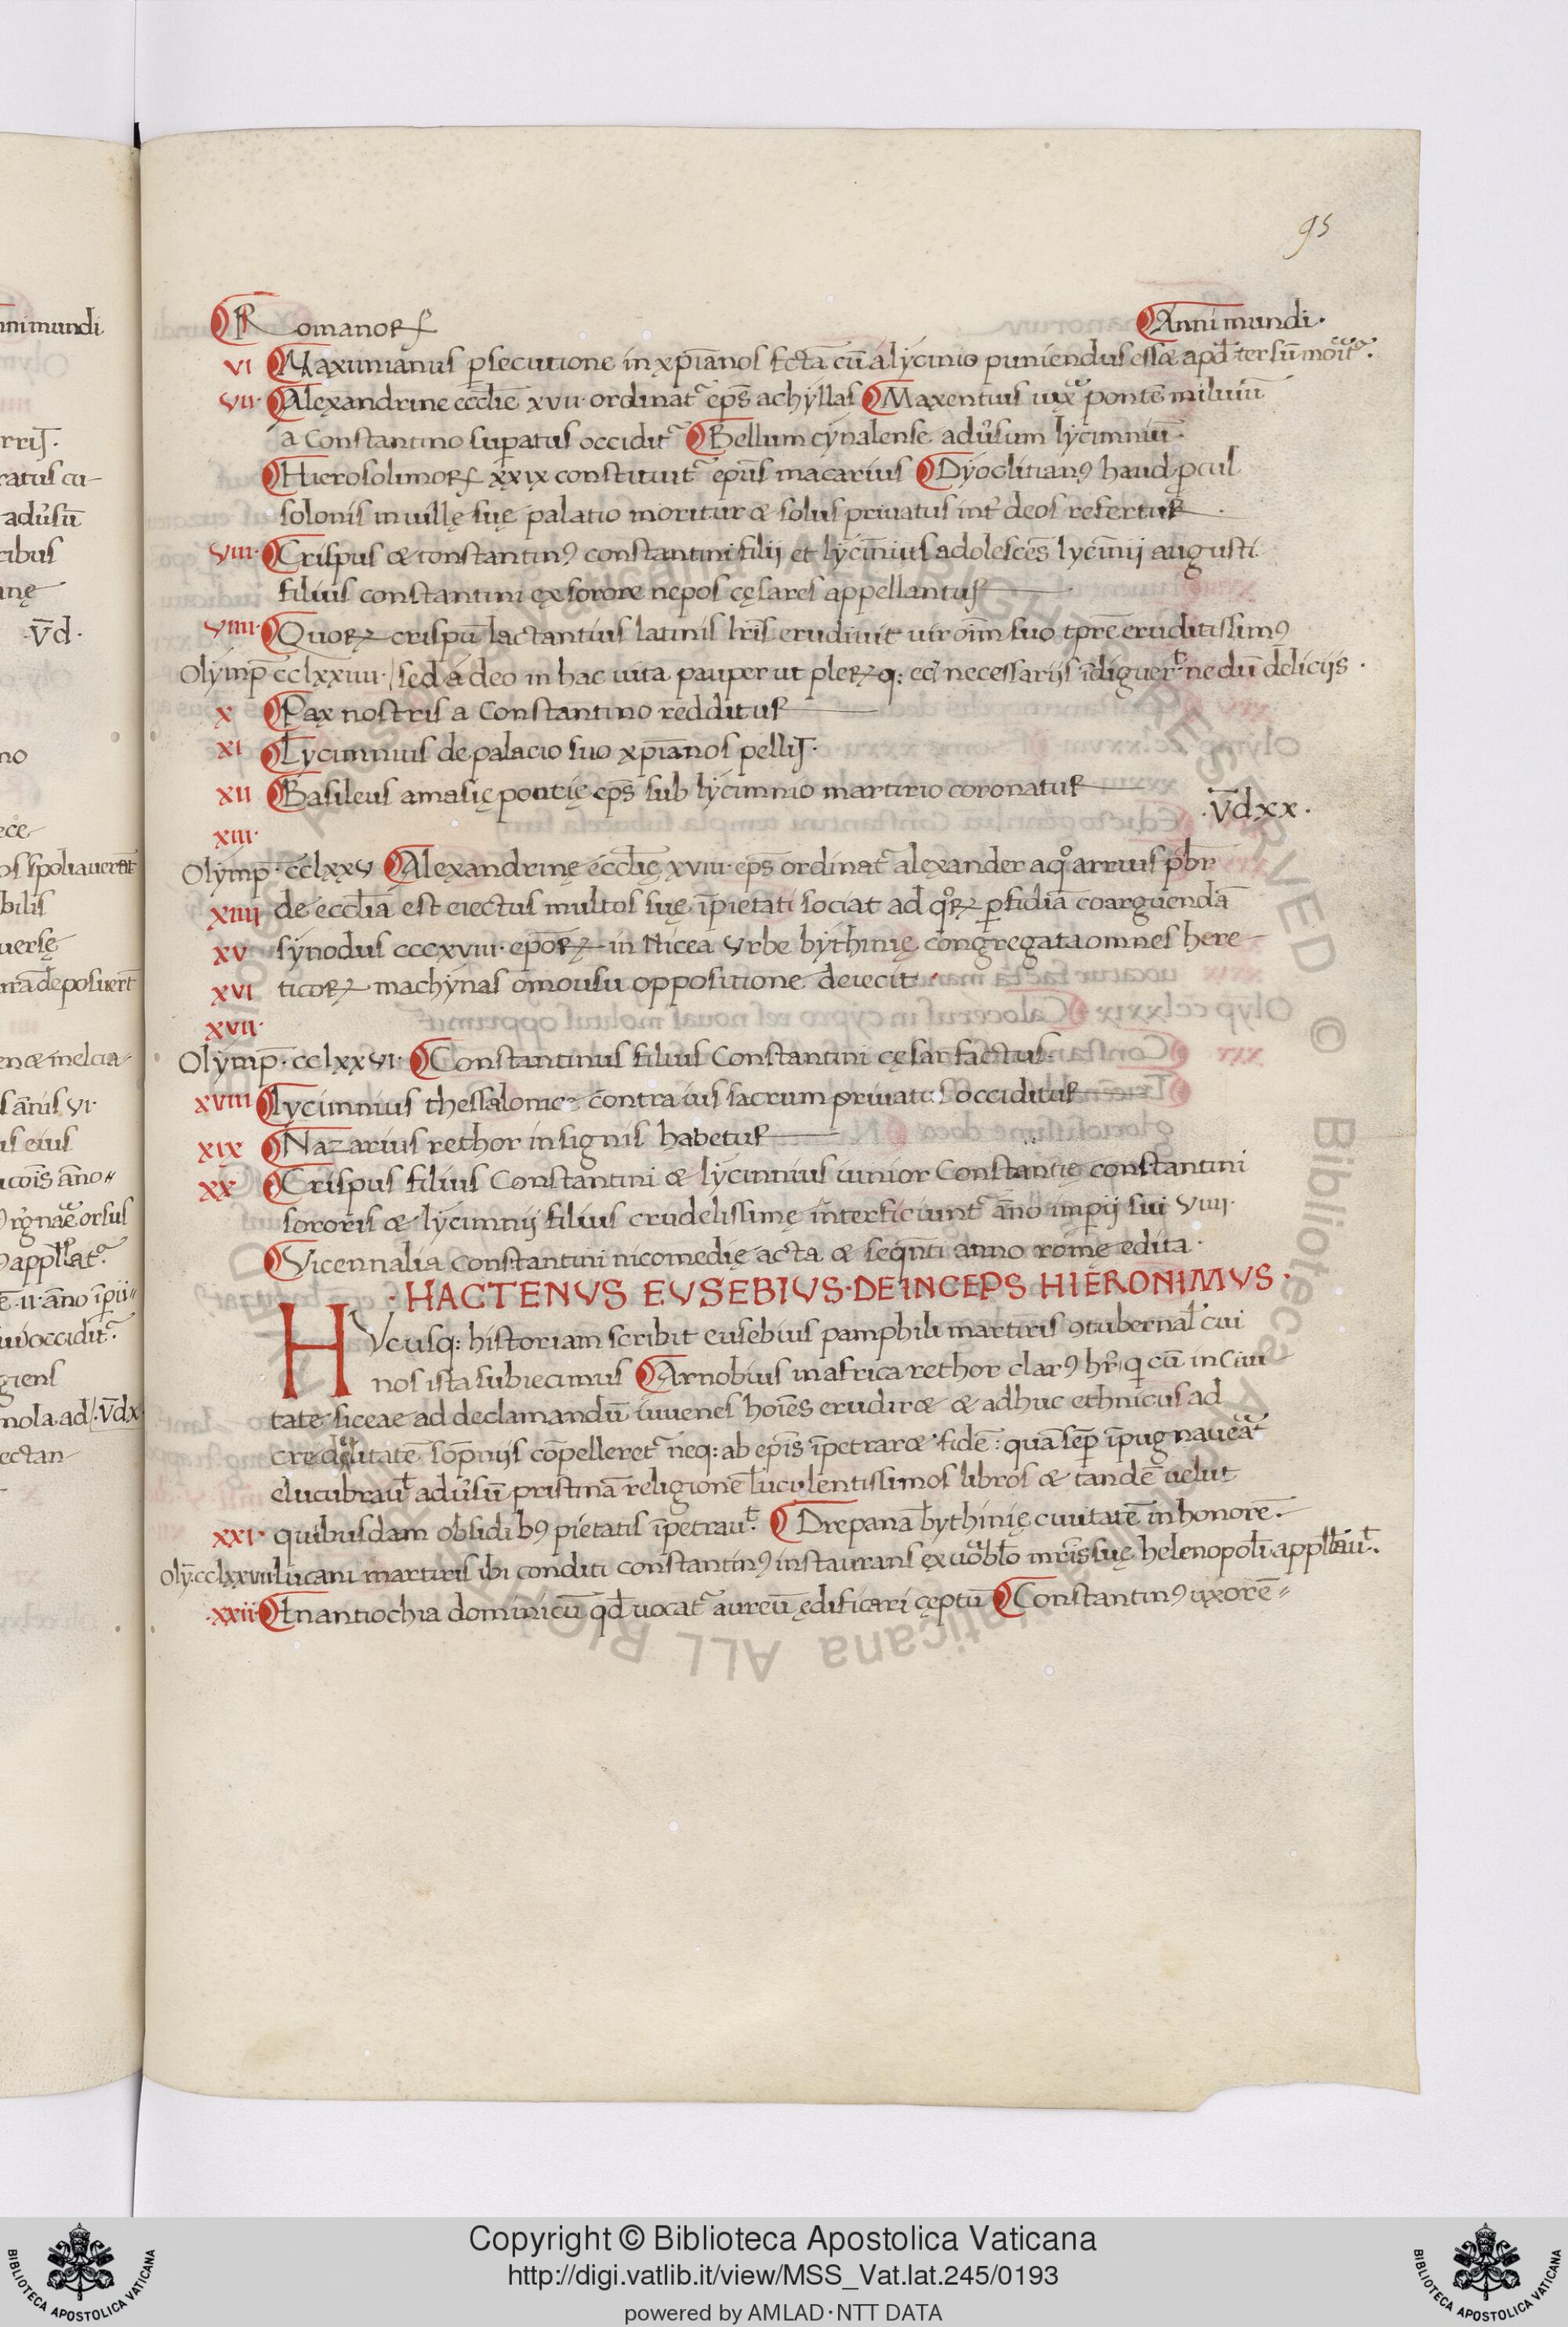 95
Romanorꝝ Anni mundi·
VI Maximianus ꝑsecutione in xp̄ianos fctā cū a lycinio puniendus essæ apd̄ tersū moritᷣ·
VII· Alexandrine eccl̄ie xvii· ordinatᷣ ep̄s achyllas Maxentius iuxᵃ pontē miluiū
a Constantino suꝑatus occiditᷣ Bellum cynalense adūsum lycinniū·
Hierosolimoꝝ xxix constituitᷣ ep̄us macarius Dyoclitianꝰ haud ꝓcul
solonis in uillę suę palatio moritur æ solus priuatus int̄ deos refertur
VIII· Crispus æ constantinꝰ constantini filij et lycinius adolescēs lycinij augusti
filius constantini ex sorore nepos cęsares appellantur
VIIII· Quoꝝ crispū lactantius latinis lr̄is erudiuit uir oīm suo tp̄re eruditissimꝰ
Olymp̄ cclxxiiii· / sed a deo in hac uita pauper ut pleꝝq: ec̄ necessarijs īdiguer̄t nedū delicijs·
X Pax nostris a Constantino redditur
XI Lycinnius de palacio suo xp̄ianos pellit·
XII Basileus amasię pontię ep̄s sub lycinnio martirio coronatur
·V̄dxx·
XIII·
Olymp̄· cclxxV Alexandrinę eccl̄ię xviii· ep̄s ordinatᷣ alexander a qͦ arrius pb̄r
XIIII de eccl̄ia est eiectus multos suę īpietati sociat ad qͦꝝ ꝑfidiā coarguendā
XV synodus cccxviii· ep̄oꝝ in Nicea Vrbe bythinię congregata omnes here-
XVI ticoꝝ machynas omousu oppositione deiecit·
XVII·
Olymp̄· cclxxVI· Constantinus filius Constantini cęsar factus·
XVIII Lycinnius thessalonice contra ius sacrum priuatus occiditur
XIX Nazarius rethor insignis habetur
XX Crispus filius Constantini æ lycinnius iunior Constantię constantini
sororis æ lycinnij filius crudelissimę interficiuntᷣ āno imꝑij sui VIIII·
Vicennalia constantini nicomedię acta æ seqn̄ti anno romę edita·
·HACTENVS EVSEBIVS·DEINCEPS HIERONIMVS·
HVcusq: historiam scribit eusebius pamphili martiris ꝯtubernal̄ cui
nos ista subiecimus Arnobius in africa rethor clarꝰ hr̄ q cū in Ciui-
tate siceae ad declamandū iuuenes hoīes erudiræ æ adhuc ethnicus ad
credulitatē somp̄nijs cōpelleretᷣ neq: ab ep̄is īpetraræ fidē: quā semꝑ īpugnaueᵃt
elucubrau̅t adūsū pristinā religionē luculentissimos libros æ tandē uelut
XXI· quibusdam obsidibꝰ pietatis īpetrau̅t· Drepanā bythinię ciuitatē in honorē·
Oly:cclxxvii lucani martiris ibi conditi constantinꝰ instaurans ex uocablo mr̄is suę helenopolī appllau̅t·
·XXII· In antiochia dominicū qd̄ uocatᷣ aureū ędificari cęptū Constantinꝰ uxorē
Copyright © Biblioteca Apostolica Vaticana
http://digi.vatlib.it/view/MSS_Vat.lat.245/0193
powered by AMLAD·NTT DATA